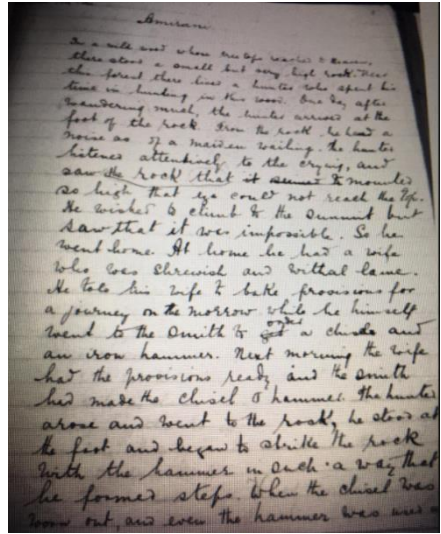 Amirani
In a wild wood whose tree tops reached to heaven,
there stood a small but very high rock. Near
this forest there lived a hunter who spent his
time in hunting in this wood. One day after
wandering much, the hunter arrived at the
foot of the rock. From the rock he heard a
noise as of a maiden wailing. The hunter
listened attentively to the crying, and
saw the rock that it seemed to mounted
so high that eye could not reach the top.
He wished to climb to the summit but
saw that it was impossible. So he
went home. At home he had a wife
who was shrewish and withal lame.
He told his wife to bake provisions for
a journey on the morrow while he himself
went to the smith to get order a chisel and
an iron hammer. Next morning the wife
had the provisions ready and the smith
had made the chisel & hammer. The hunter
arose and went to the rock, he stood at
the foot and began to strike the rock
with the hammer in such a way that
he formed steps. When the chisel was
worn out, and even the hammer was